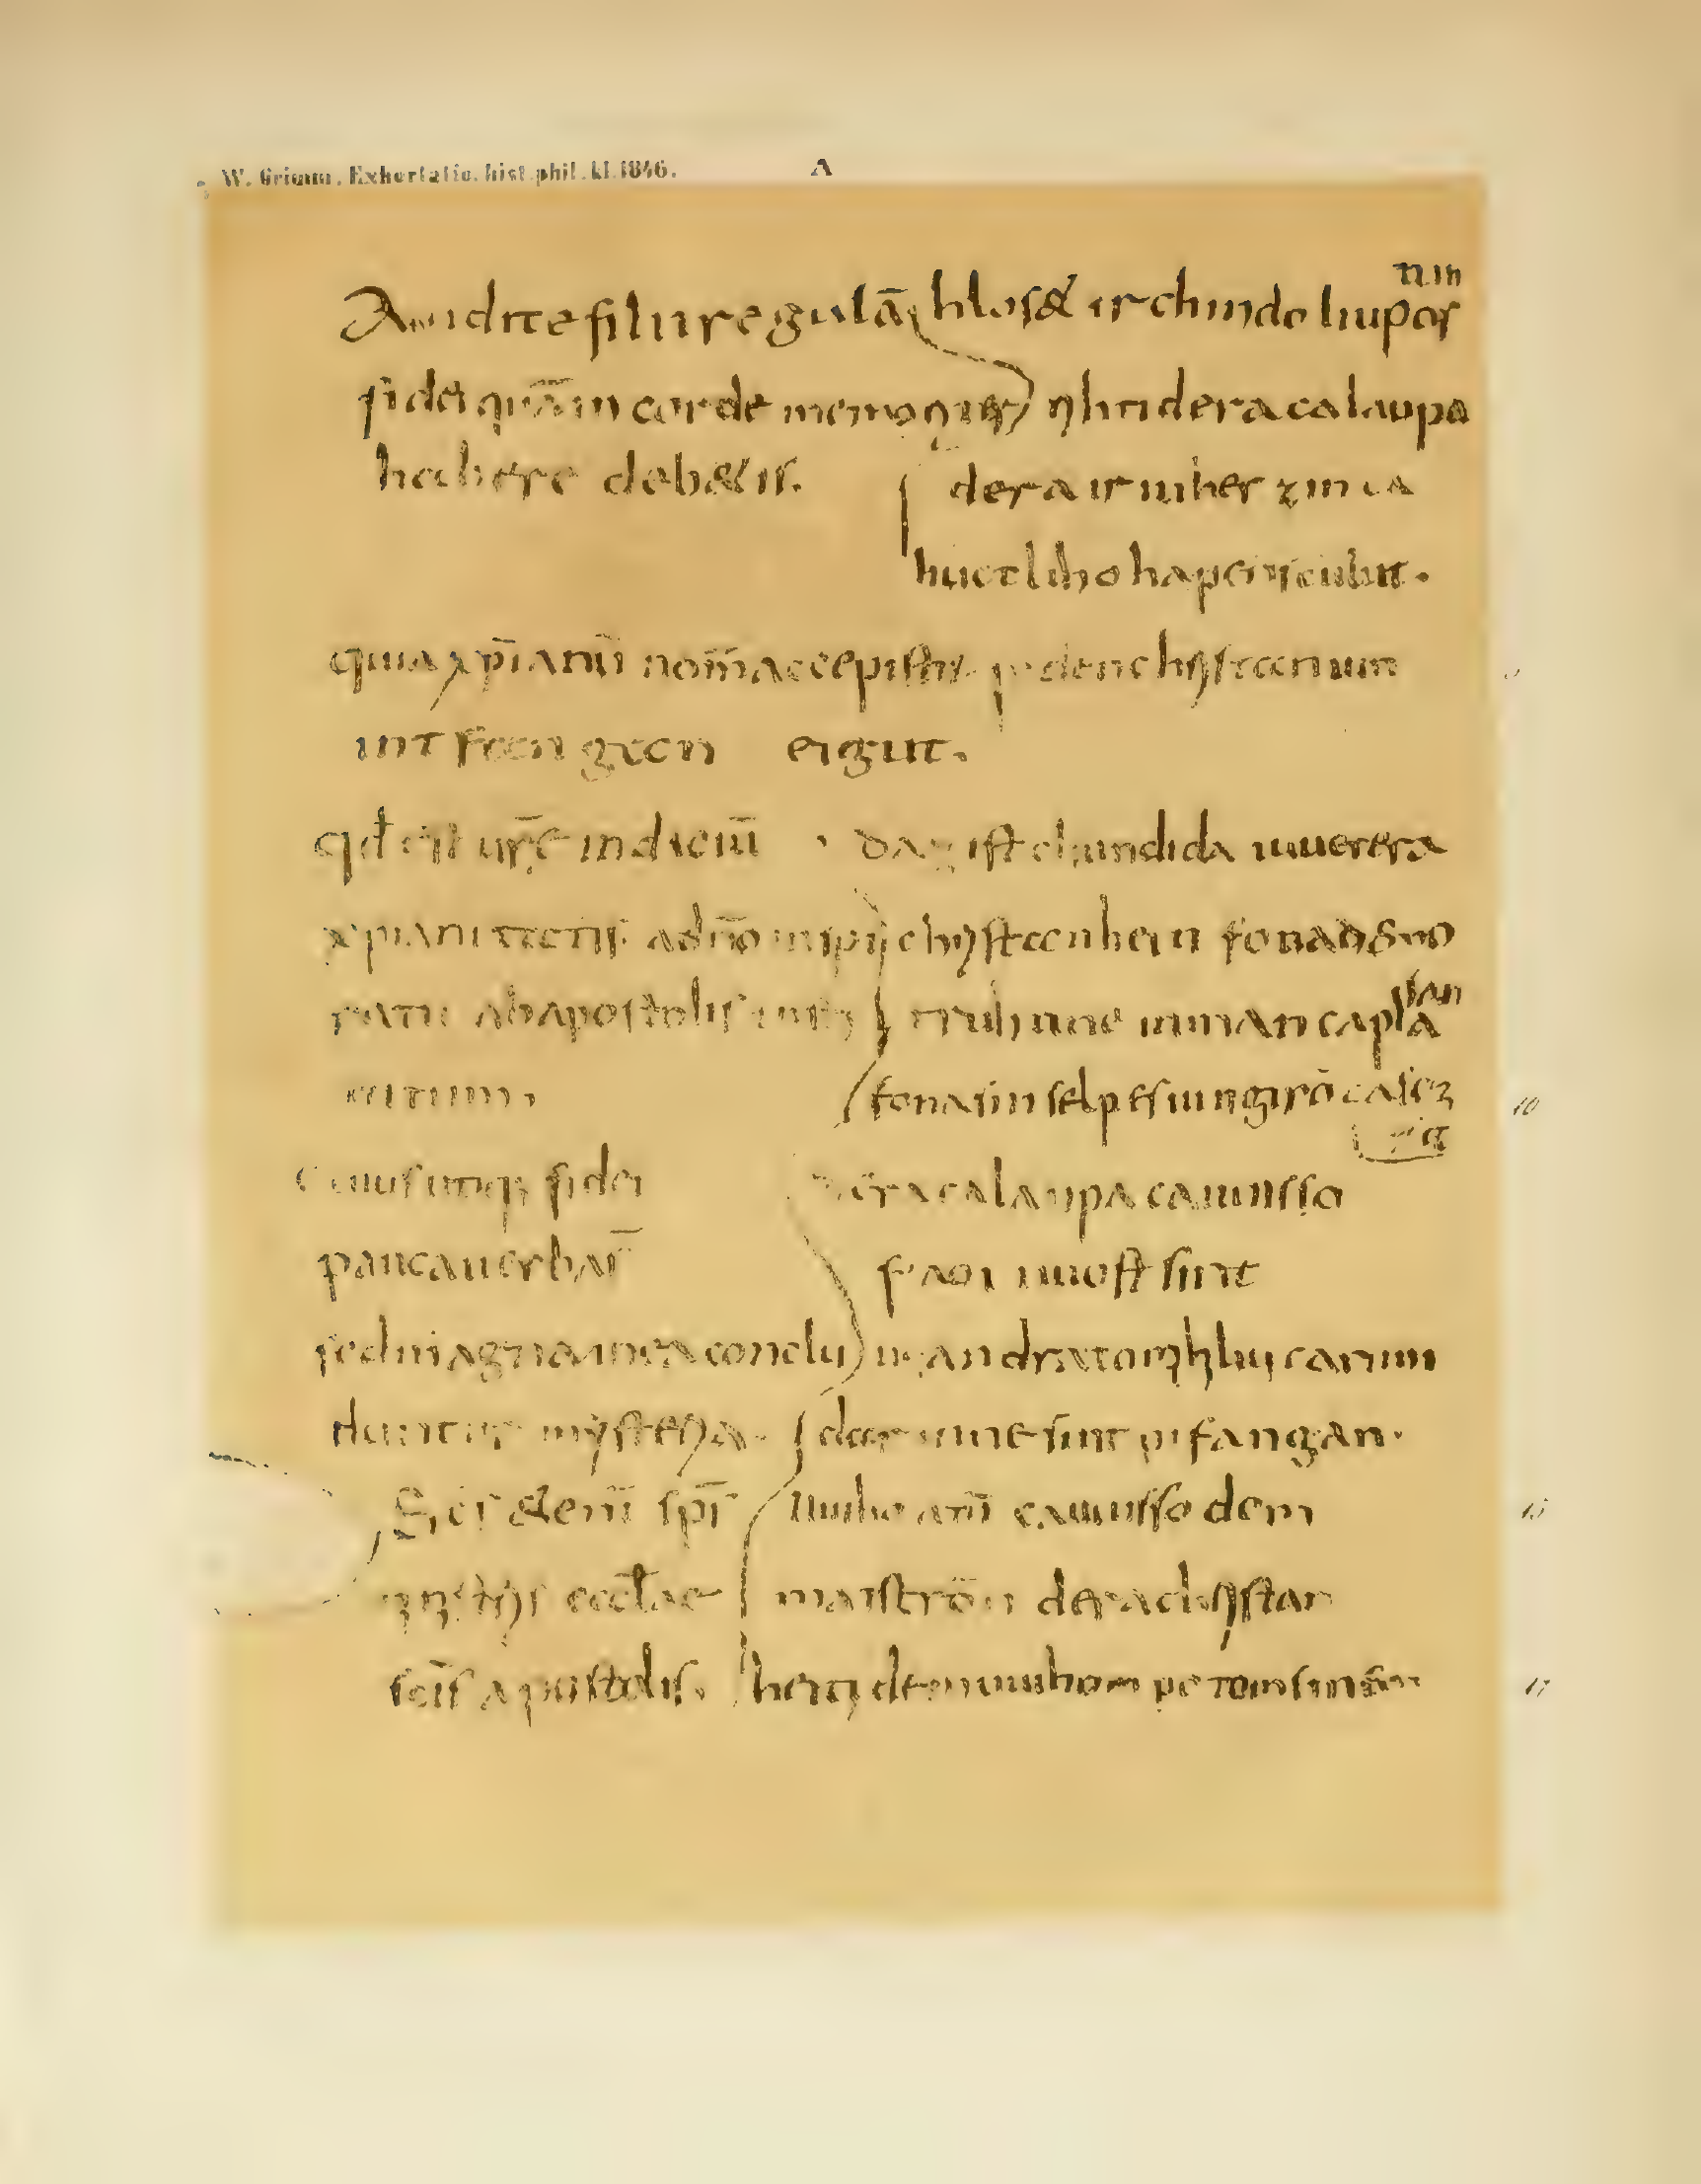 W. Grimm. Exhortatio. hist. phil. kl. 1846. A
Audite filii regulā hlos& ir chindo liupos
tun
fidei quā in corde memoriter rihtida dera calaupa
habere deb&is. dera ir in herzin
huctliho hapen sculut.
quia xp̄ianū nom̄ accepistis. ir den christanun
intfangan eigut.
qđ est ur̄e indiciū daz ist chundida iuuerera
xpianitatis. adn̄o inspi christanheiti fona demo
ratū ab apostolis truhtine in man capla
san
titum. fona sin selpes iungirō casez
zit
cuius utiq; fidei dera calaupa cauuisso
pauca uerba s̄ faoi uuort sint
sed magna in ea conclu uuan drato mihhiliu carunu
duntur mysteria. dar inne sint pifangan.
Sc̄s &enī sp̄s uuiho atū cauuisso dem
magistris eccłae maistron dera christan
sc̄is apostolis. heiti dem uuihom potom sinem